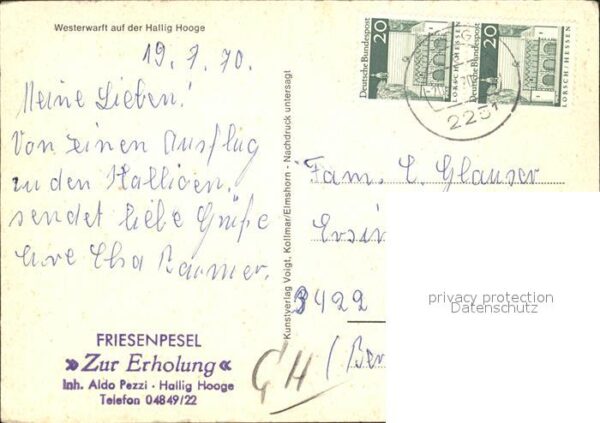 Westerwarft auf der Hallig Hooge
19.7.70.
Meine Lieben!
Von einen Ausflug
zu den Halligen,
sendet liebe Grüße
Eure Elsa
FRIESENPESEL
»Zur Erholung«
Inh. Aldo Pezzi · Hallig Hooge
Telefon 04849/22
Kunstverlag Voigt, Kollmar/Elmshorn - Nachdruck untersagt
Deutsche Bundespost
20
LORSCH/HESSEN
Deutsche Bundespost
20
LORSCH/HESSEN
2251
Fam. E. Glauser
Ersin
3422
(Ber
CH
privacy protection
Datenschutz